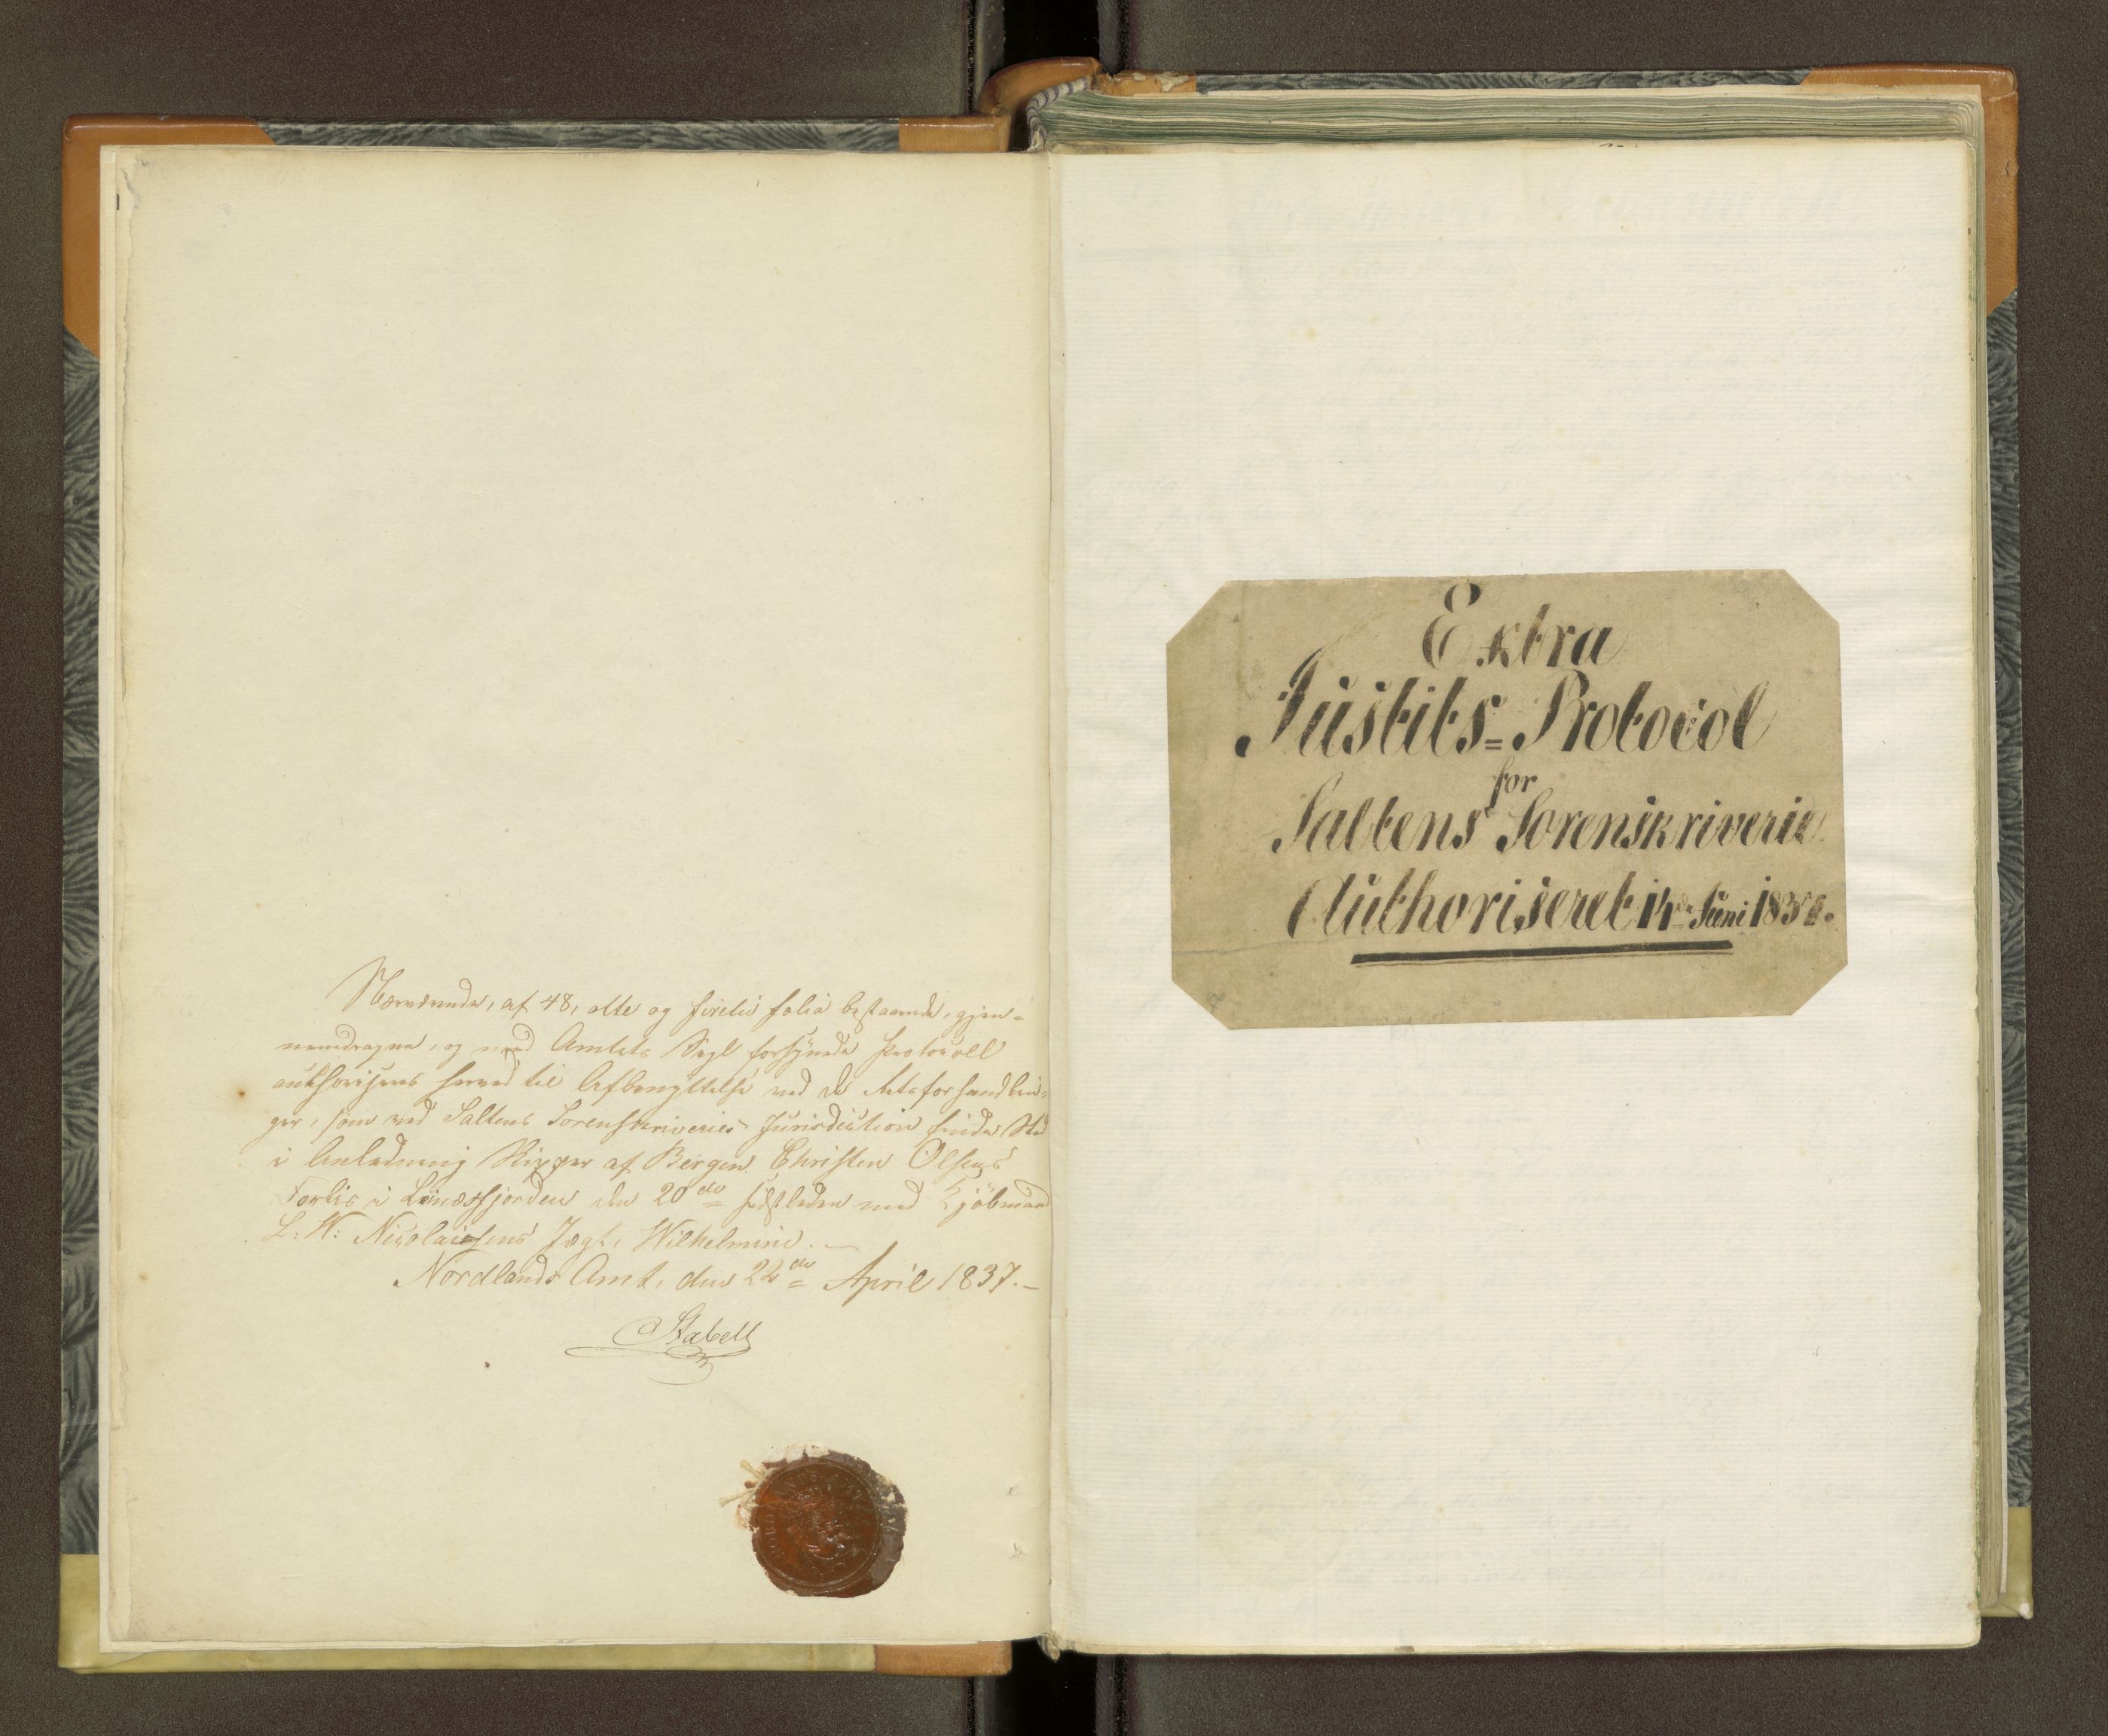 Nærværende, af 48, otte og firetiv folia bestaaende, gjen-
nemdragne, og med Amtets Segl forsynede Protocoll
authoriseres herved til Afbenyttelse ved de Retsforhandlin-
ger, som ved Saltens Sorenskriveries Jurisdiction finde Sted
i Anledning Skipper af Bergen Christen Olsens
Forlis i fjorden den 20de sidstleden med Kjöbmand
L: W: Nicolaisens Jagt, Wilhelmine.
Nordlands Amt, den 22de April 1837.-
Stabell
Extra
Justits=Protocol
for
Saltens Sorenskriverie
Authoriseret 14de Juni